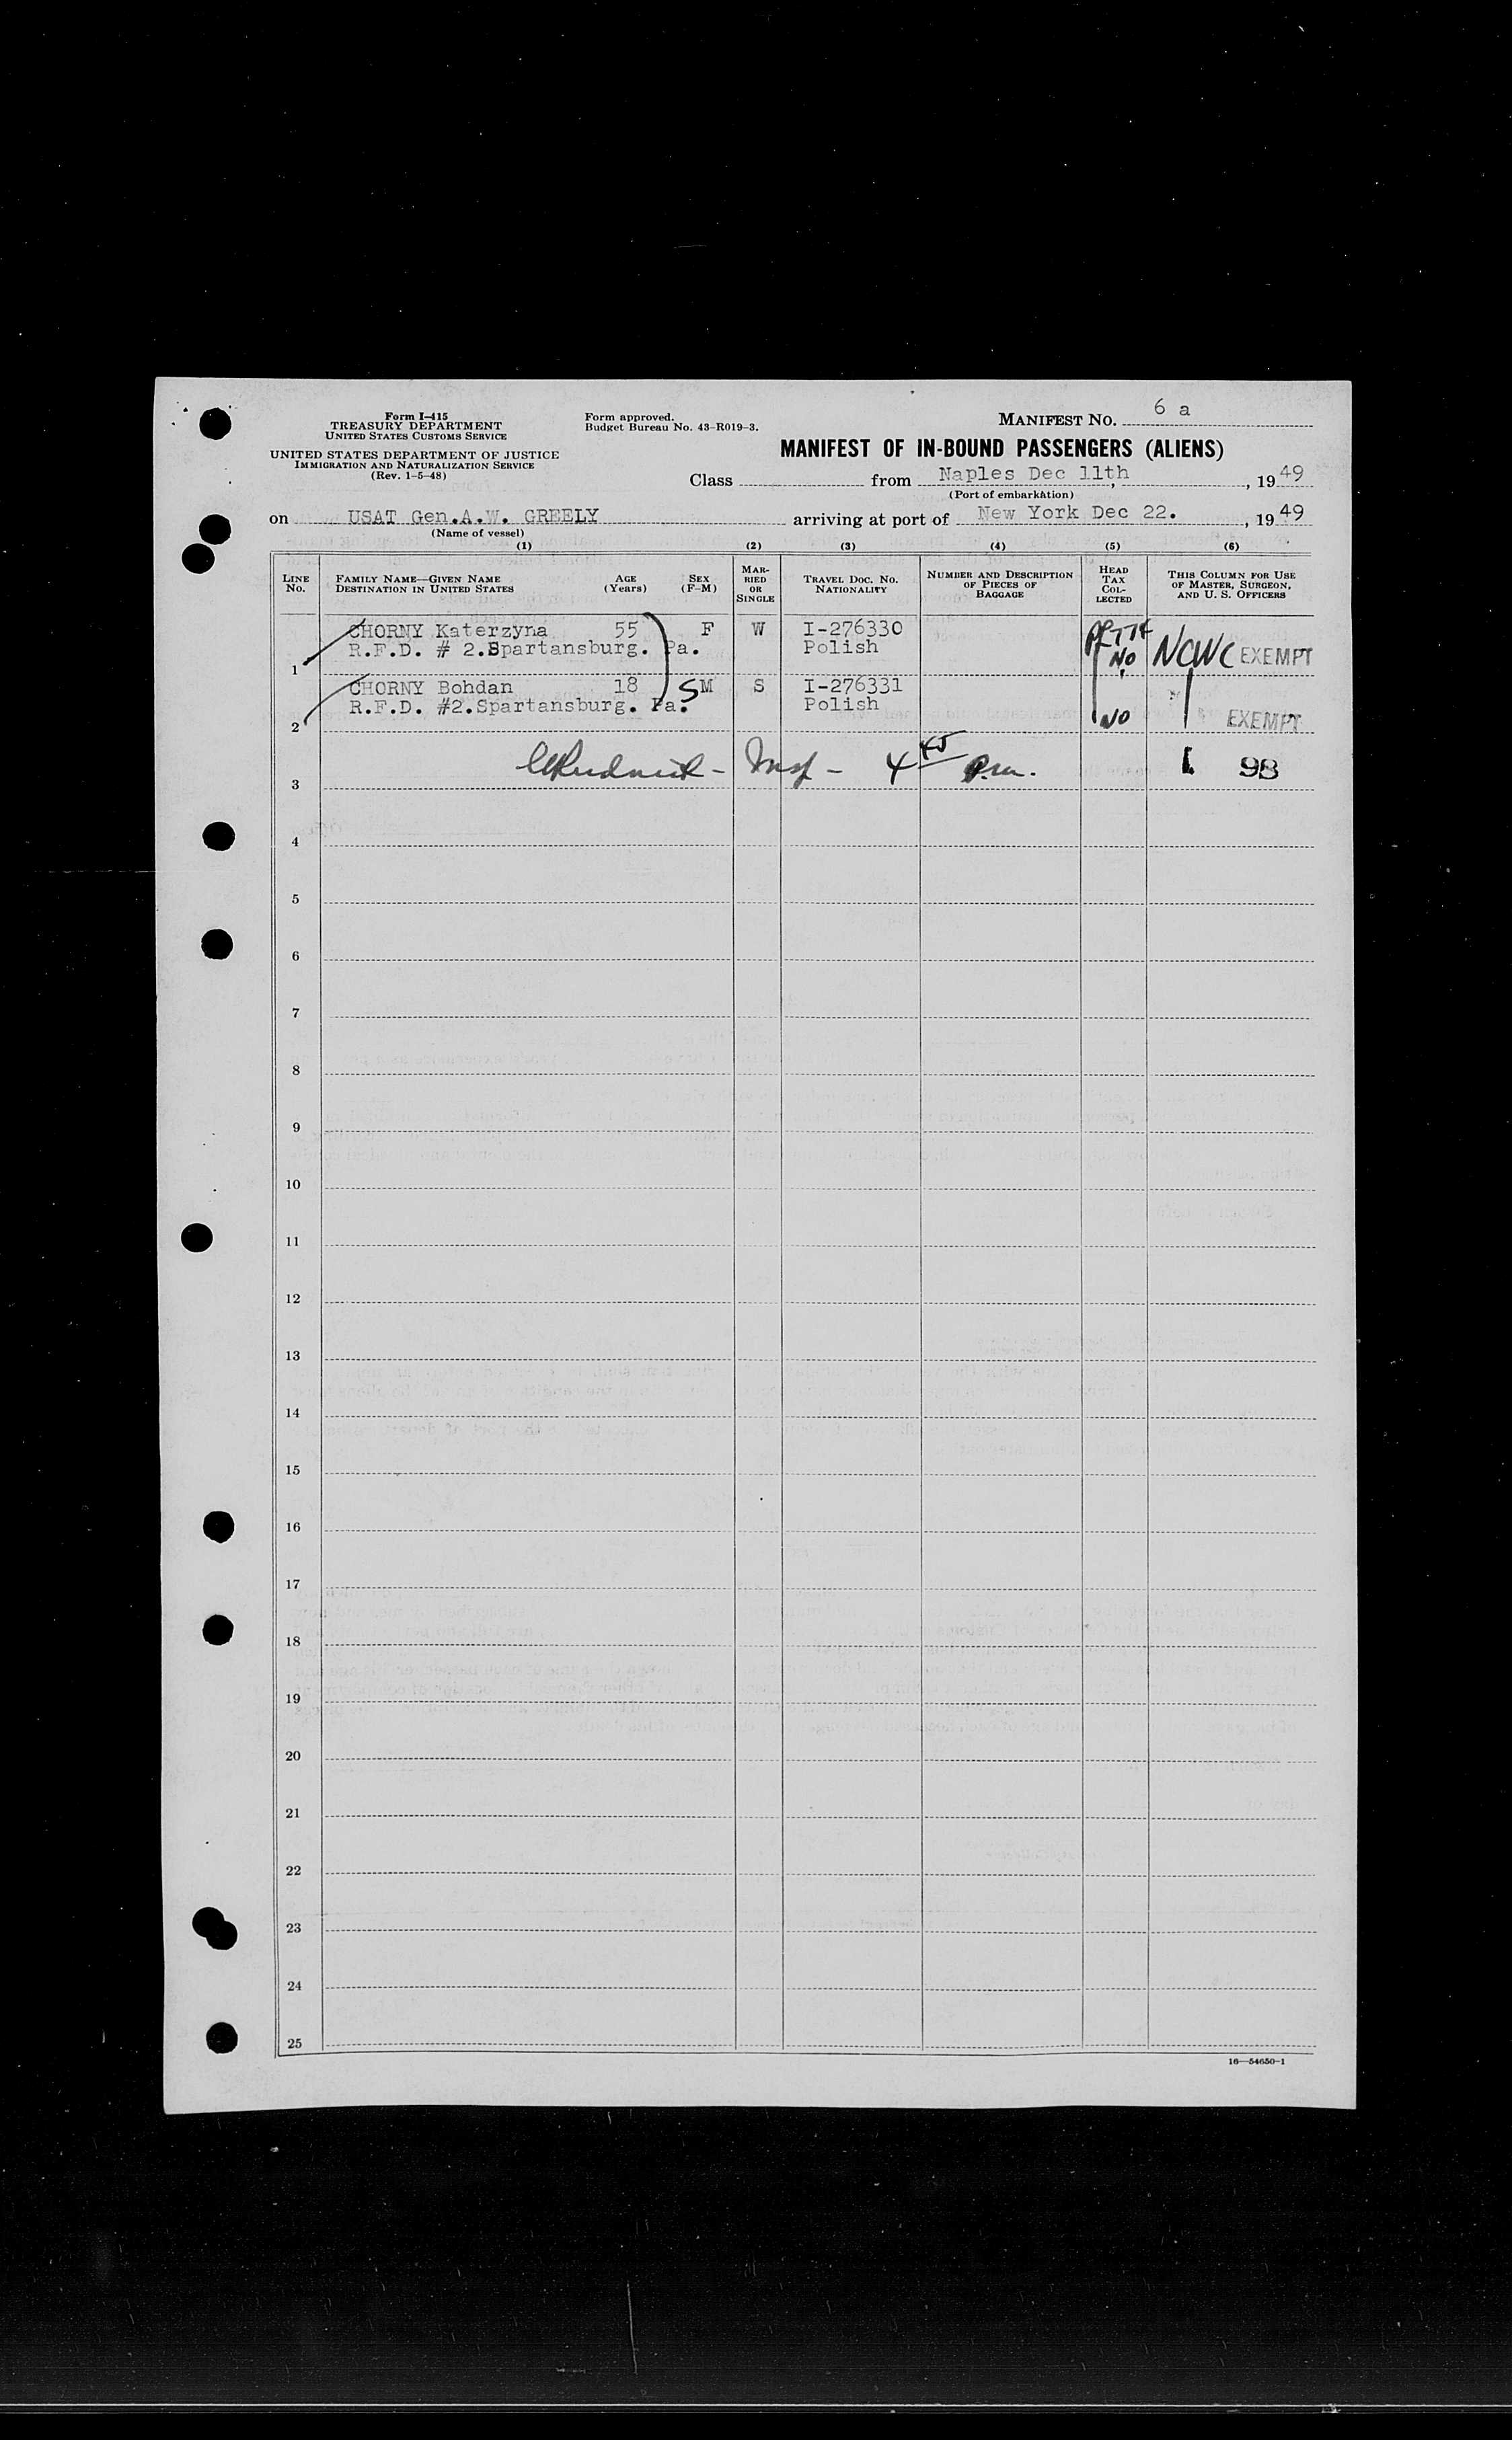 Form I-415
TREASURY DEPARTMENT
UNITED STATES CUSTOMS SERVICE
UNITED STATES DEPARTMENT OF JUSTICE
IMMIGRATION AND NATURALIZATION SERVICE
(Rev. 1-5-48)
Form approved.
Budget Bureau No. 43-R019-3.
MANIFEST NO. 6 a
MANIFEST OF IN-BOUND PASSENGERS (ALIENS)
Class from Naples Dec 11th, 1949
(Port of embarkation)
on USAT Gen.A.W. GREELY arriving at port of New York Dec 22., 1949
(Name of vessel)
(1) (2) (3) (4) (5) (6)
LINE NO.
FAMILY NAME—GIVEN NAME
DESTINATION IN UNITED STATES
AGE (Years)
SEX (F-M)
MARRIED OR SINGLE
TRAVEL DOC. NO.
NATIONALITY
NUMBER AND DESCRIPTION OF PIECES OF BAGGAGE
HEAD TAX COLLECTED
THIS COLUMN FOR USE OF MASTER, SURGEON, AND U. S. OFFICERS
CHORNY Katerzyna 55 F W I-276330
1 R.F.D. # 2.Spartansburg. Pa. Polish NO NCWC EXEMPT
CHORNY Bohdan 18 S M S I-276331
2 R.F.D. #2.Spartansburg. Pa. Polish NO EXEMPT
3 Insp - 4 45 p.m. 98
4
5
6
7
8
9
10
11
12
13
14
15
16
17
18
19
20
21
22
23
24
25
16—54650-1